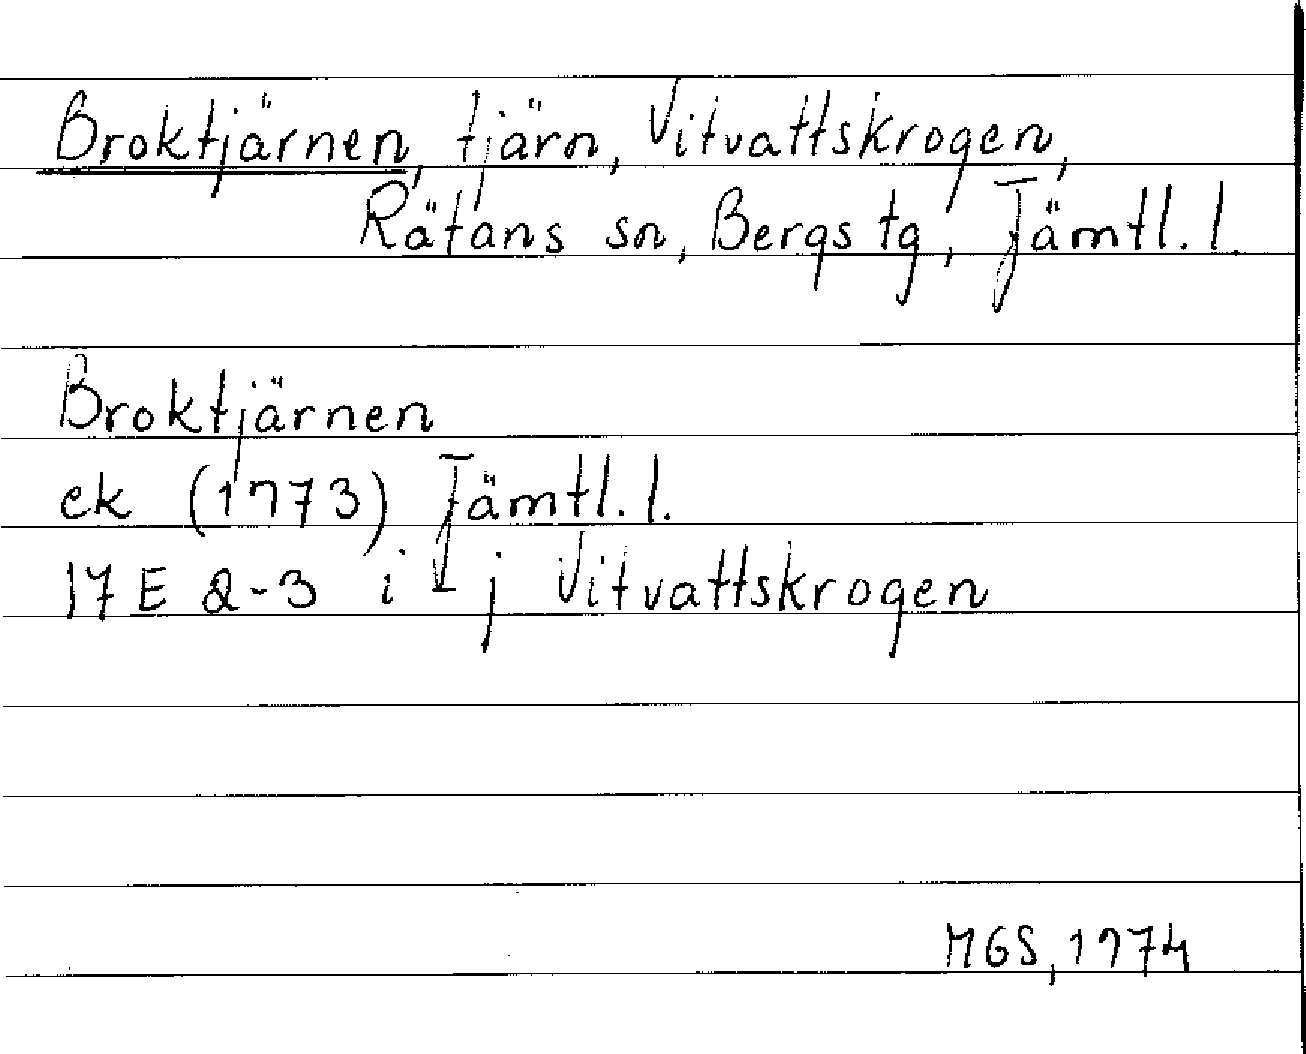 Broktjärnen, tjärn, Vitvattskrogen,
Rätans sn, Bergs tg, Jämtl. l.
Broktjärnen
ek (1973) Jämtl. l.
17 E 2-3 i - j Vitvattskrogen
MGS, 1974